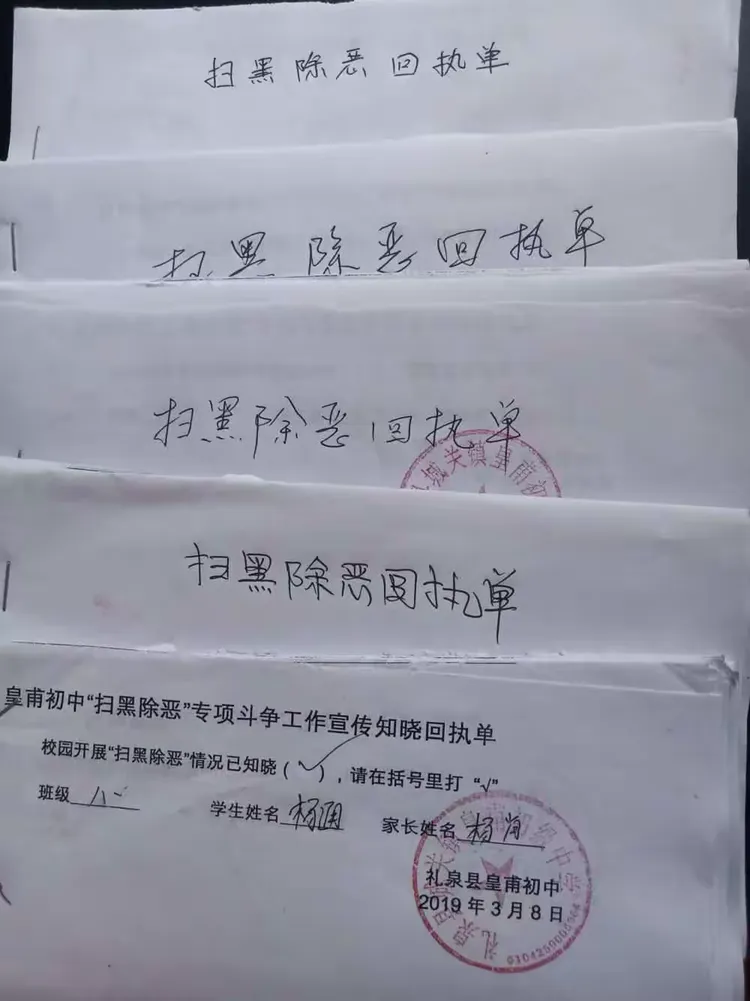 扫黑除恶回执单
扫黑除恶回执单
扫黑除恶回执单
城关镇皇甫初
扫黑除恶回执单
皇甫初中“扫黑除恶”专项斗争工作宣传知晓回执单
校园开展“扫黑除恶”情况已知晓(✓),请在括号里打“√”
班级 八一 学生姓名 杨 家长姓名 杨
礼泉县皇甫初中
2019年3月8日
礼泉县城关镇皇甫初级中学